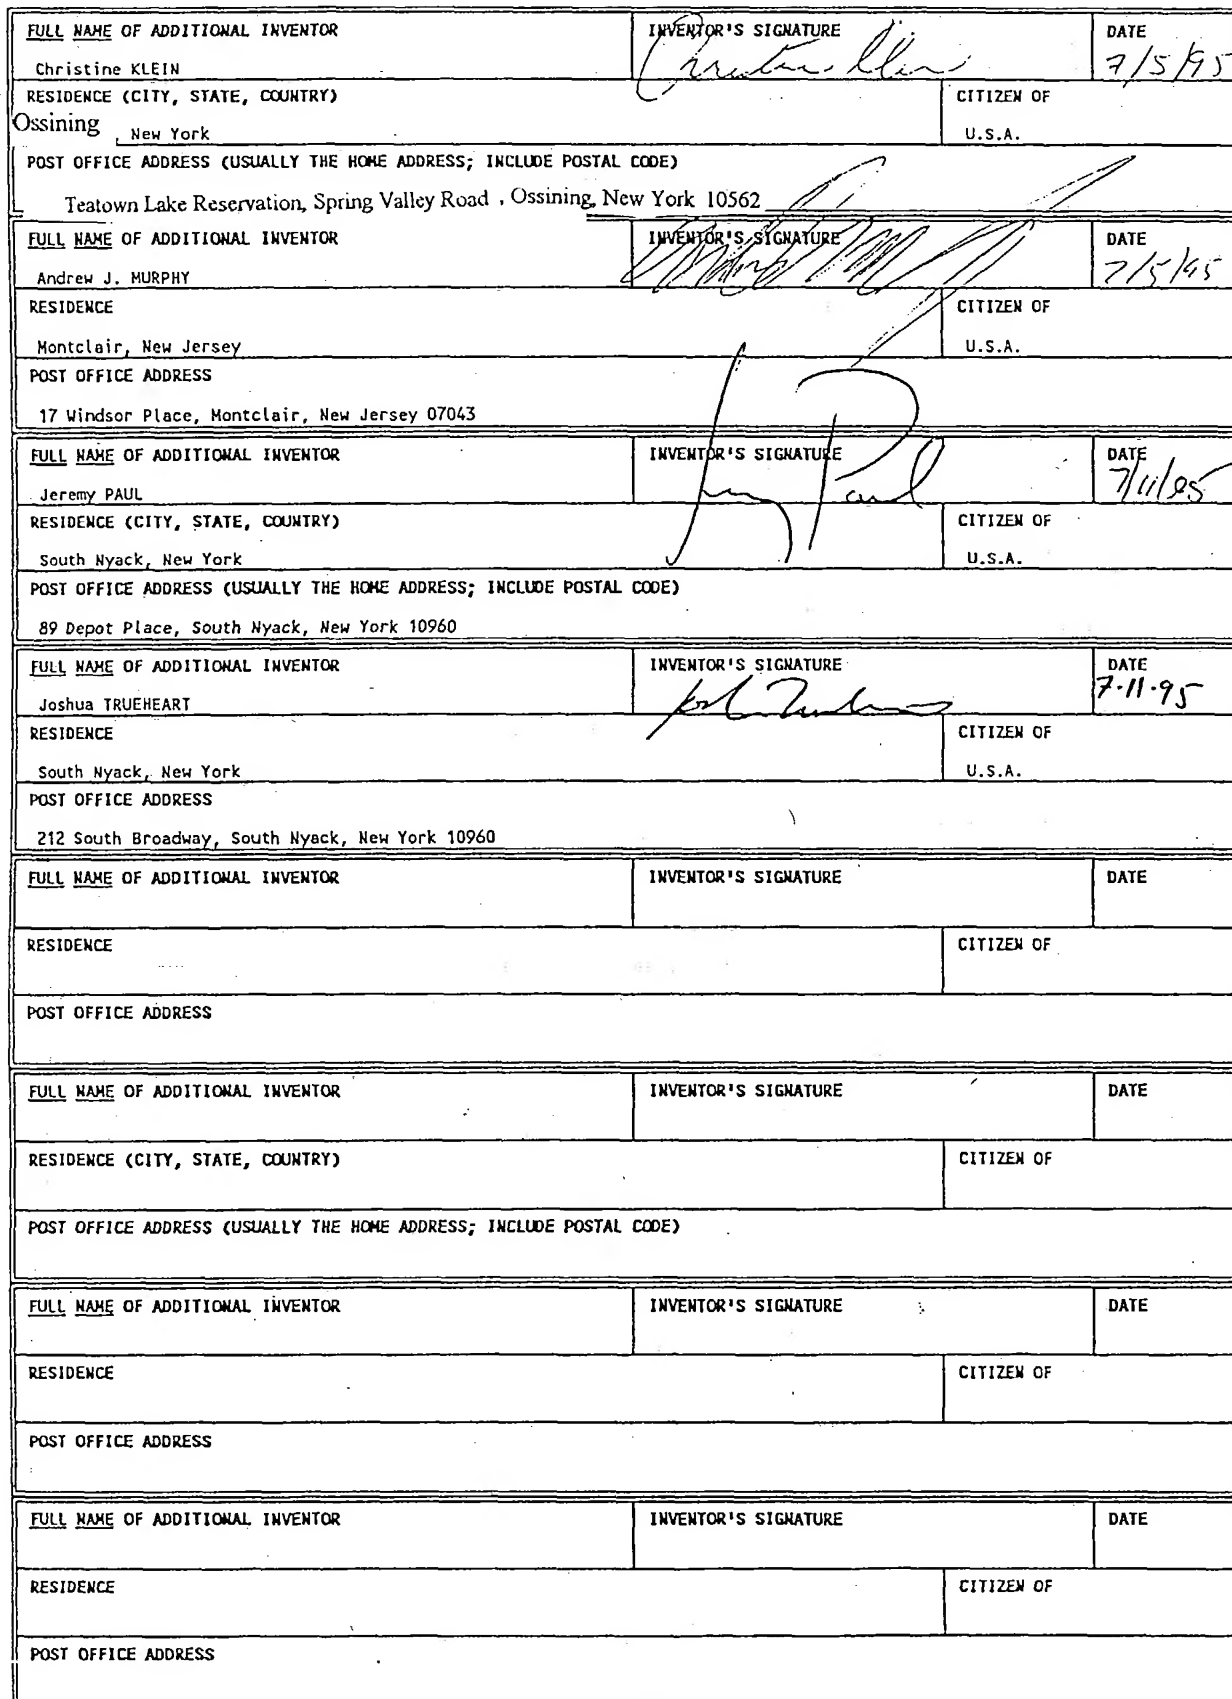 FULL NAME OF ADDITIONAL INVENTOR INVENTOR'S SIGNATURE DATE
Christine KLEIN Christine Klein 7/5/95
RESIDENCE (CITY, STATE, COUNTRY) CITIZEN OF
Ossining, New York U.S.A.
POST OFFICE ADDRESS (USUALLY THE HOME ADDRESS; INCLUDE POSTAL CODE)
Teatown Lake Reservation, Spring Valley Road, Ossining, New York 10562
FULL NAME OF ADDITIONAL INVENTOR INVENTOR'S SIGNATURE DATE
Andrew J. MURPHY 7/5/95
RESIDENCE CITIZEN OF
Montclair, New Jersey U.S.A.
POST OFFICE ADDRESS
17 Windsor Place, Montclair, New Jersey 07043
FULL NAME OF ADDITIONAL INVENTOR INVENTOR'S SIGNATURE DATE
Jeremy PAUL Jeremy Paul 7/11/95
RESIDENCE (CITY, STATE, COUNTRY) CITIZEN OF
South Nyack, New York U.S.A.
POST OFFICE ADDRESS (USUALLY THE HOME ADDRESS; INCLUDE POSTAL CODE)
89 Depot Place, South Nyack, New York 10960
FULL NAME OF ADDITIONAL INVENTOR INVENTOR'S SIGNATURE DATE
Joshua TRUEHEART 7.11.95
RESIDENCE CITIZEN OF
South Nyack, New York U.S.A.
POST OFFICE ADDRESS
212 South Broadway, South Nyack, New York 10960
FULL NAME OF ADDITIONAL INVENTOR INVENTOR'S SIGNATURE DATE
RESIDENCE CITIZEN OF
POST OFFICE ADDRESS
FULL NAME OF ADDITIONAL INVENTOR INVENTOR'S SIGNATURE DATE
RESIDENCE (CITY, STATE, COUNTRY) CITIZEN OF
POST OFFICE ADDRESS (USUALLY THE HOME ADDRESS; INCLUDE POSTAL CODE)
FULL NAME OF ADDITIONAL INVENTOR INVENTOR'S SIGNATURE DATE
RESIDENCE CITIZEN OF
POST OFFICE ADDRESS
FULL NAME OF ADDITIONAL INVENTOR INVENTOR'S SIGNATURE DATE
RESIDENCE CITIZEN OF
POST OFFICE ADDRESS